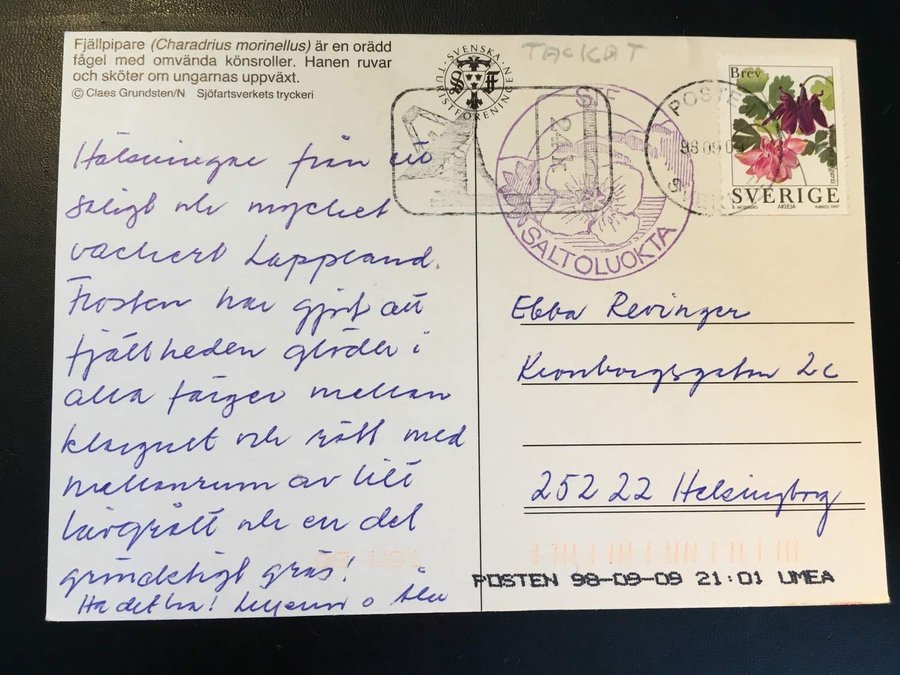 Fjällpipare (Charadrius morinellus) är en orädd
fågel med omvända könsroller. Hanen ruvar
och sköter om ungarnas uppväxt.
© Claes Grundsten/N Sjöfartsverkets tryckeri
SVENSKA TURISTFÖRENINGEN
STF
TACKAT
STF
SALTOLUOKTA
POSTEN
98 09 0
Brev
SVERIGE
AKLEJA
Hälsningar från ett
soligt och mycket
vackert Lappland.
Frosten har gjort att
fjällheden glöder i
alla färger mellan
klargult och rött med
mellanrum av litt
lavgrått och en del
grönaktigt gräs!
Ha det bra!
Ebba Revinger
Kronborgsgatan 2c
252 22 Helsingborg
POSTEN 98-09-09 21:01 UMEA